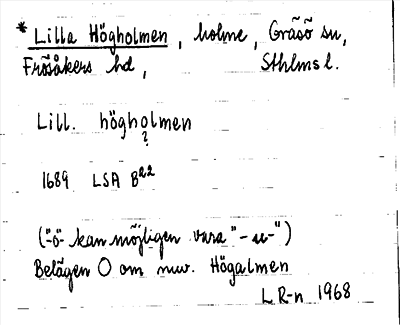 * Lilla Högholmen, holme, Gräsö sn,
Frösåkers hd, Sthlms l.
Lill. högholmen
?
1689 LSA B22
("-ö- kan möjligen vara "-u-")
Belägen O om nuv. Högalmen
L R-n 1968